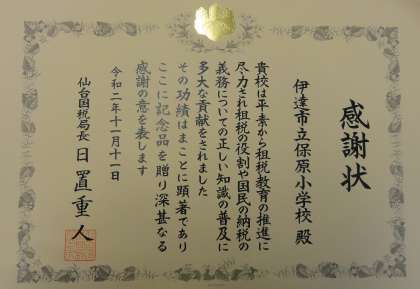 感謝状
伊達市立保原小学校 殿
貴校は平素から租税教育の推進に
尽力され租税の役割や国民の納税の
義務についての正しい知識の普及に
多大な貢献をされました
その功績はまことに顕著であり
ここに記念品を贈り深甚なる
感謝の意を表します
令和二年十一月十一日
仙台国税局長 日置重人